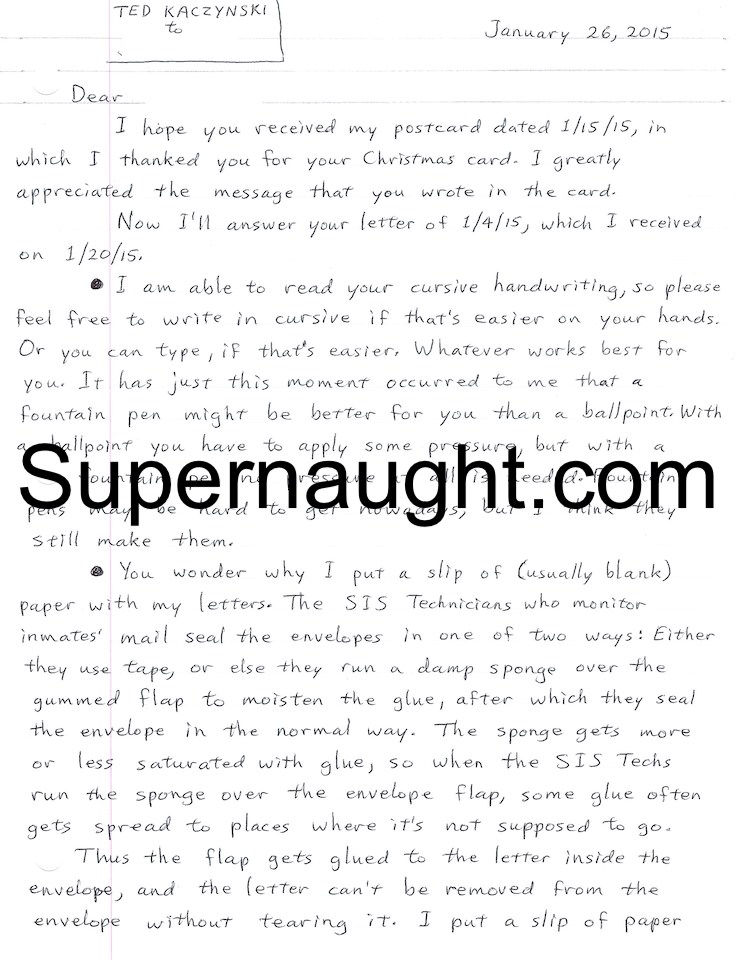 TED KACZYNSKI
to
January 26, 2015
Dear
I hope you received my postcard dated 1/15/15, in
which I thanked you for your Christmas card. I greatly
appreciated the message that you wrote in the card.
Now I'll answer your letter of 1/4/15, which I received
on 1/20/15.
● I am able to read your cursive handwriting, so please
feel free to write in cursive if that's easier on your hands.
Or you can type, if that's easier. Whatever works best for
you. It has just this moment occurred to me that a
fountain pen might be better for you than a ballpoint. With
a ballpoint you have to apply some pressure, but with a
Supernaught.com
fountain pen no pressure at all is needed. Fountain
pens may be hard to get nowadays, but I think they
still make them.
● You wonder why I put a slip of (usually blank)
paper with my letters. The SIS Technicians who monitor
inmates' mail seal the envelopes in one of two ways: Either
they use tape, or else they run a damp sponge over the
gummed flap to moisten the glue, after which they seal
the envelope in the normal way. The sponge gets more
or less saturated with glue, so when the SIS Techs
run the sponge over the envelope flap, some glue often
gets spread to places where it's not supposed to go.
Thus the flap gets glued to the letter inside the
envelope, and the letter can't be removed from the
envelope without tearing it. I put a slip of paper